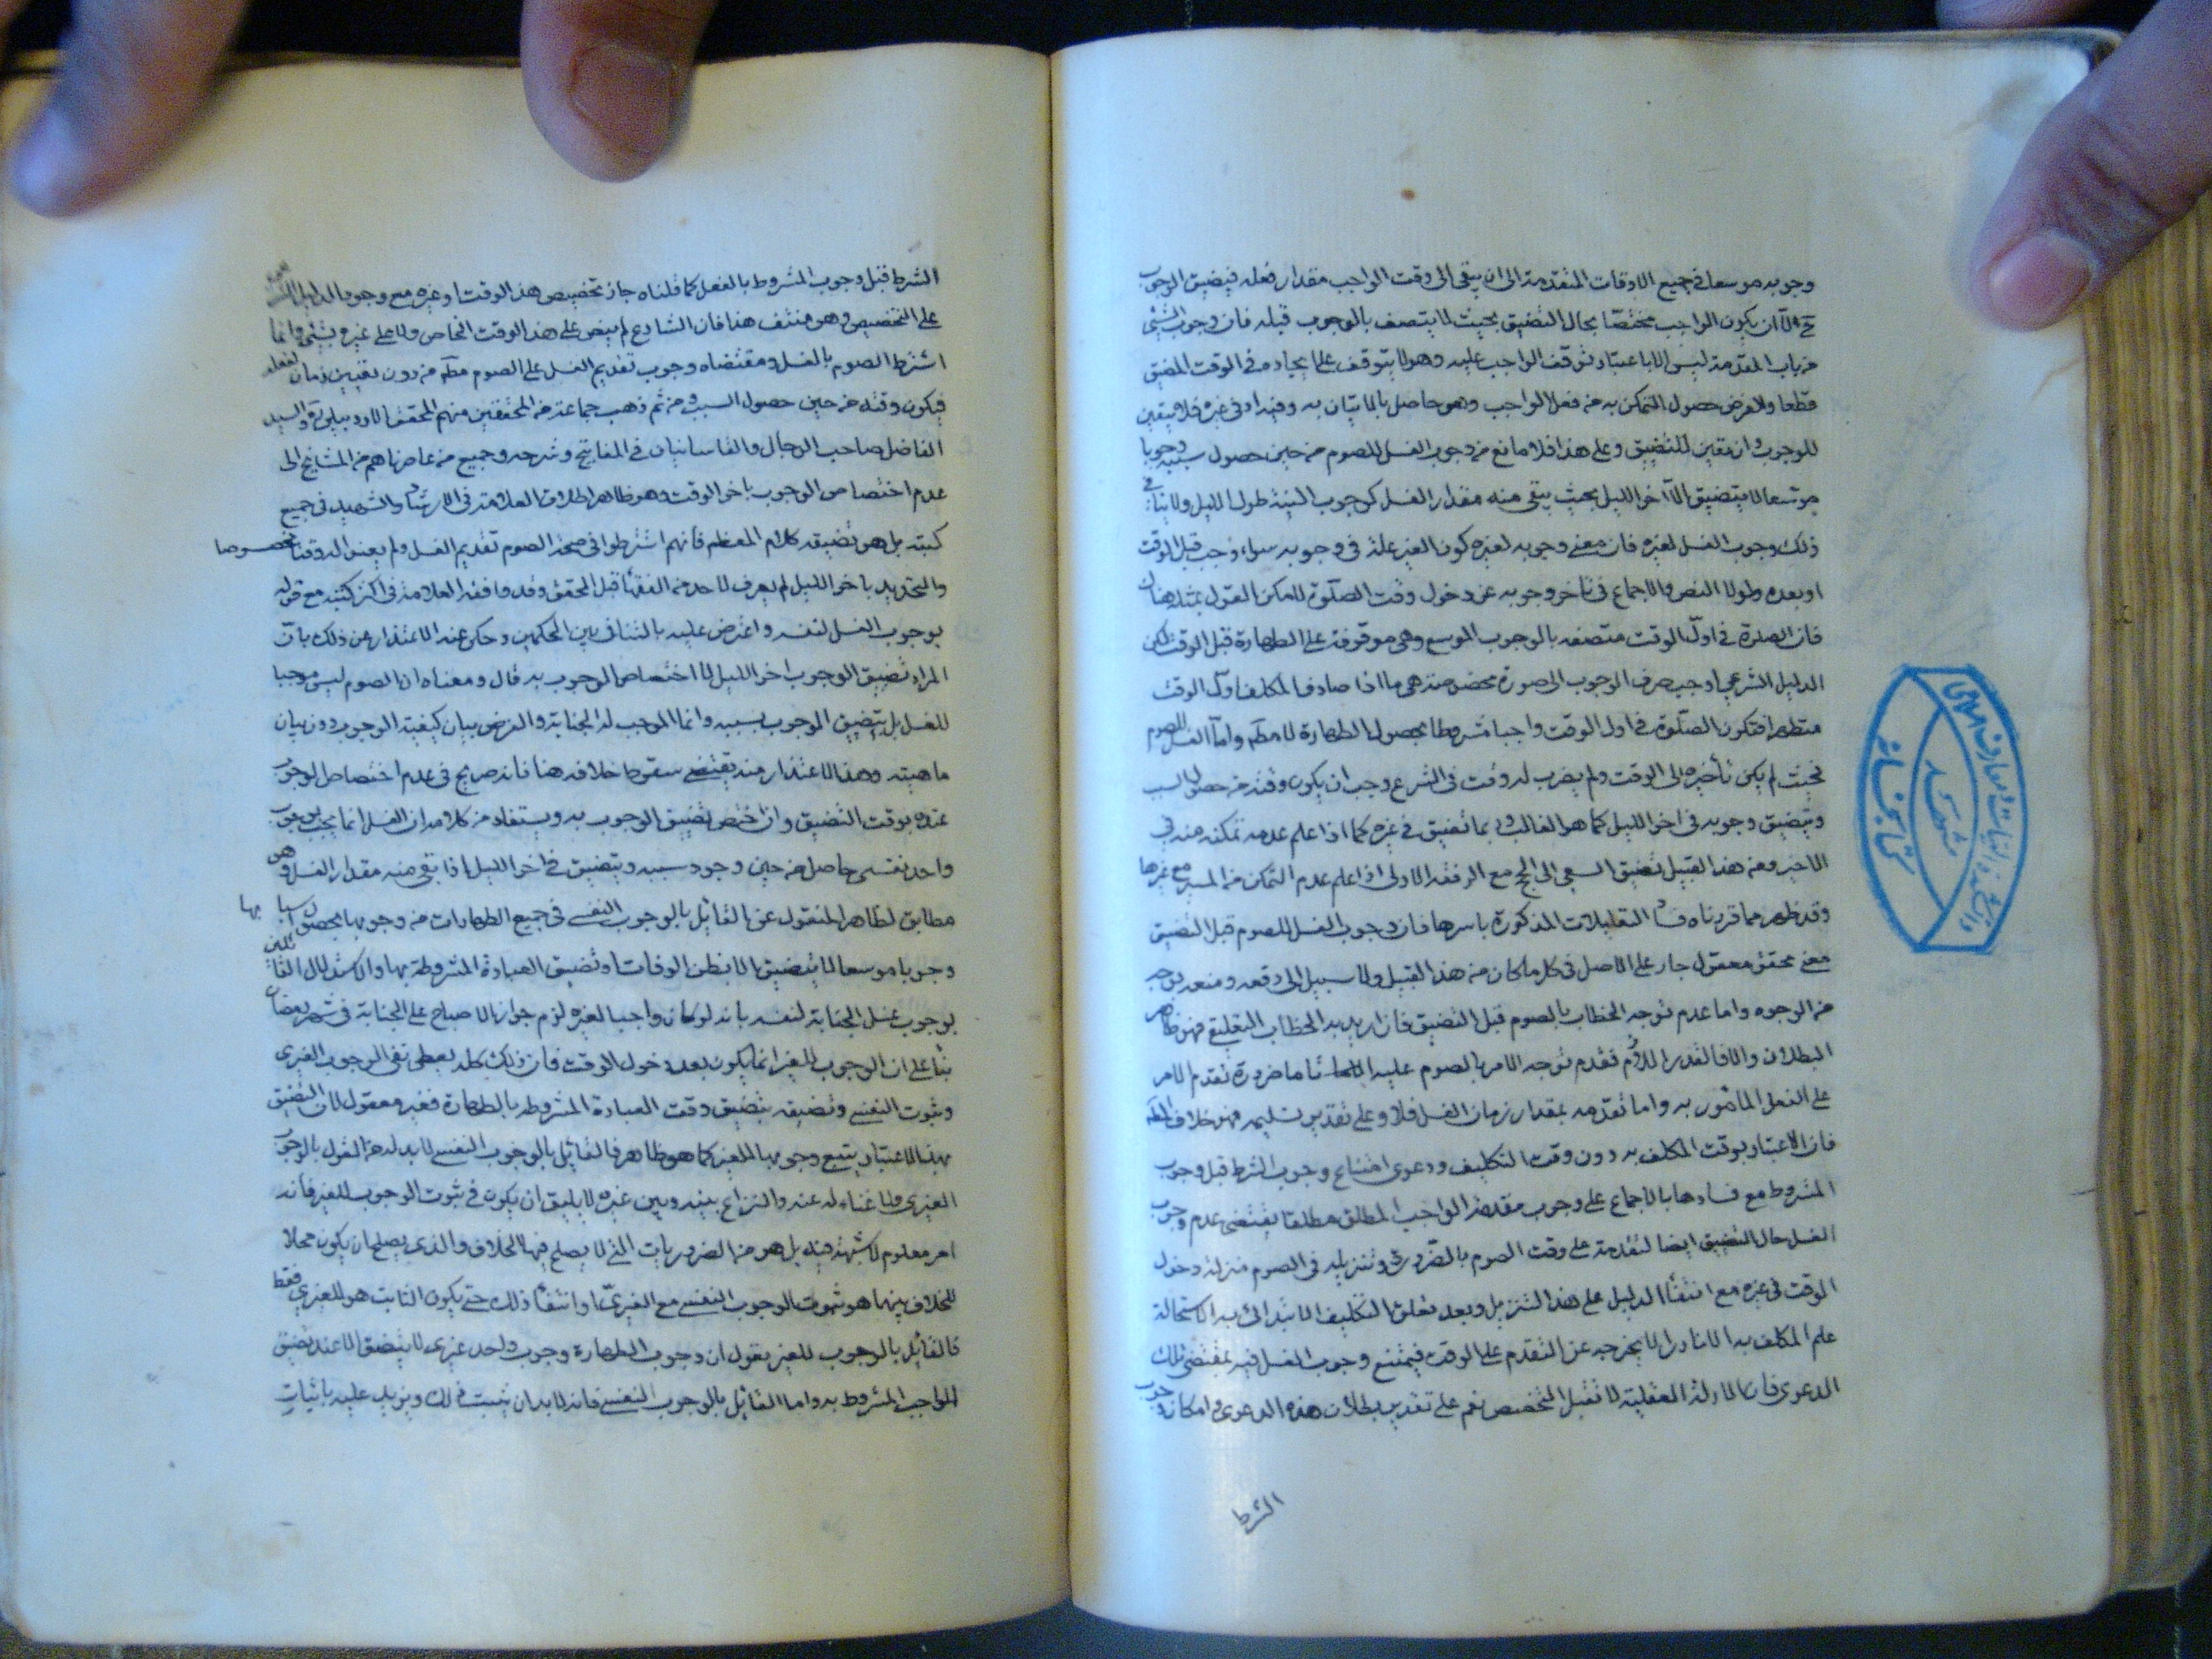 وجوبه موسعا في جميع الاوقات المتقدمة الى ان يبقى الى وقت الواجب مقدار فعله فيضيق الوجوب
ح والا ان يكون الواجب مختصا بحال التضيق بحيث لا يتصف بالوجوب قبله فان وجوب الشئ
من باب المقدمة ليس الا باعتبار توقف الواجب عليه وهو لا يتوقف على ايجاده في الوقت المضيق
قطعا والغرض حصول التمكن به من فعل الواجب وهو حاصل بالاتيان به وفيه او في غيره فلا يتعين
للوجوب وان تعين للتضيق وعلى هذا فلا مانع من وجوب الغسل للصوم من حين حصول سببه وجوبا
موسعا لا يتضيق الا آخر الليل بحيث يبقى منه مقدار الغسل كوجوب النية طول الليل ولا ينافي
ذلك وجوب الغسل لغيره فان معنى وجوبه لغيره كون الغير علة في وجوبه سواء وجب قبل الوقت
او بعده ولولا النص والاجماع في تأخر وجوبه عن دخول وقت الصلوة لامكن القول بمثله هناك
فان الصلوة في اول الوقت متصفه بالوجوب الموسع وهي موقوفة على الطهارة قبل الوقت لكن
الدليل الشرعي اوجب صرف الوجوب الى صورة مخصوصة هي ما اذا صادف المكلف اول الوقت
متطهرا فتكون الصلوة في اول الوقت واجبا مشروطا بحصول الطهارة لا مطلقا واما الغسل للصوم
فحيث لم يكن تأخيره الى الوقت ولم يضرب له وقت في الشرع وجب ان يكون وقته من حصول السبب
ويتضيق وجوبه في اخر الليل كما هو الغالب وربما تضيق في غيره كما اذا علم عدم تمكنه منه في
الاخير ومن هذا القبيل تضيق السعي الى الحج مع الرفقة الاولى اذا علم عدم التمكن من المسير مع غيرها
وقد ظهر مما قررناه فساد التعليلات المذكورة باسرها فان وجوب الغسل للصوم قبل التضيق
معنى محقق معقول جار على الاصل في كل ما كان من هذا القبيل ولا سبيل الى دفعه ومنعه بوجه
من الوجوه واما عدم توجه الخطاب بالصوم قبل التضيق فان اريد به الخطاب التعليقي فهو ظاهر
البطلان والا فالقدر اللازم تقدم توجه الامر بالصوم عليه ضرورة تقدم الامر
على الفعل المأمور به واما تقدمه بمقدار زمان الغسل فلا وعلى تقدير تسليمه فهو خلاف
فان الاعتبار بوقت المكلف به دون وقت التكليف ودعوى امتناع وجوب الشرط قبل وجوب
المشروط مع فسادها بالاجماع على وجوب مقدمة الواجب المطلق مطلقا يقتضى عدم وجوب
الغسل حال التضيق ايضا لتقدمه على وقت الصوم بالضرورة وتنزيله في الصوم منزلة دخول
الوقت في غيره مع انتفاء الدليل على هذا التنزيل وبعد تعلق التكليف الابتدائي به لاستحالة
علم المكلف به الا نادرا لا يخرجه عن التقدم على الوقت فيمتنع وجوب الغسل فيه بمقتضى تلك
الدعوى فان الادلة العقلية لا تقبل التخصيص نعم على تقدير بطلان هذه الدعوى وامكان وجوب
الشرط
الشرط قبل وجوب المشروط بالفعل كما قلناه جاز تخصيص هذا الوقت او غيره مع وجود الدليل
على التخصيص وهو منتف هنا فان الشارع لم ينص على هذا الوقت الخاص ولا على غيره بشئ وانما
اشترط الصوم بالغسل ومقتضاه وجوب تقديم الغسل على الصوم من دون تعيين زمان لفعله
فيكون وقته من حين حصول السبب ومن ثم ذهب جماعة من المحققين منهم المحقق الاردبيلي والسيد
الفاضل صاحب الرجال والقاسانيان في المفاتيح وشرحه وجميع من عاصرناهم من المشايخ الى
عدم اختصاص الوجوب باخر الوقت وهو ظاهر اطلاق العلامة في الارشاد والشهيد في جميع
كتبه بل هو تضيقه كلام المعظم فانهم اشترطوا في صحة الصوم تقديم الغسل ولم يعينوا له وقتا مخصوصا
والتحديد باخر الليل لم يعرف لاحد من الفقهاء قبل المحقق وقد وافقه العلامة في اكثر كتبه مع قوله
بوجوب الغسل لنفسه واعترض عليه بالتنافي بين الحكمين وحكى عنه الاعتذار عن ذلك بان
المراد تضيق الوجوب اخر الليل لا اختصاص الوجوب به قال ومعناه ان الصوم ليس موجبا
للغسل بل يتضيق الوجوب بسببه وانما الموجب له الجنابة والغرض بيان كيفية الوجوب دون بيان
ماهيته وهذا الاعتذار منه يقتضي سقوط خلافه هنا فانه صريح في عدم اختصاص الوجوب
عنده بوقت التضيق وان اختص تضيق الوجوب به ويستفاد من كلامه ان الغسل انما يجب بوجوب
واحد نفسي حاصل من حين وجود سببه ويتضيق في اخر الليل اذا بقي منه مقدار الغسل وهو
مطابق لظاهر المنقول عن القائل بالوجوب النفسي في جميع الطهارات من وجوبها بحصول اسبابها
وجوبا موسعا لا يتضيق الا بظن الوفات او تضيق العبادة المشروطة بها والاستدلال القائلين
بوجوب غسل الجنابة لنفسه بانه لو كان واجبا لغيره لزم جواز الاصباح على الجنابة في شهر رمضان
بناء على ان الوجوب للغير انما يكون بعد دخول الوقت فان ذلك كله يعطى نفى الوجوب الغيرى
وثبوت النفسي وتضيقه بتضيق وقت العبادة المشروطه بالطهارة فغير معقول لان التضيق
بهذا الاعتبار يتبع وجوبها للغير كما هو ظاهر فالقائل بالوجوب النفسي لا بد له من القول بالوجوب
الغيري ولا غناء له عنه والنزاع بينه وبين غيره لا يليق ان يكون في ثبوت الوجوب للغير فانه
امر معلوم لا شبهة فيه بل هو من الضروريات التي لا يصلح فيها الخلاف والذي يصلح ان يكون محلا
للخلاف بينهما هو ثبوت الوجوب النفسي مع الغيرى او انتفاء ذلك حتى يكون الثابت هو الغيري فقط
فالقائل بالوجوب للغير يقول ان وجوب الطهارة وجوب واحد غيرى لا يتضيق الا عند تضيق
الواجب المشروط به واما القائل بالوجوب النفسي فانه لا بد ان يثبت ذلك ويزيد عليه باثبات